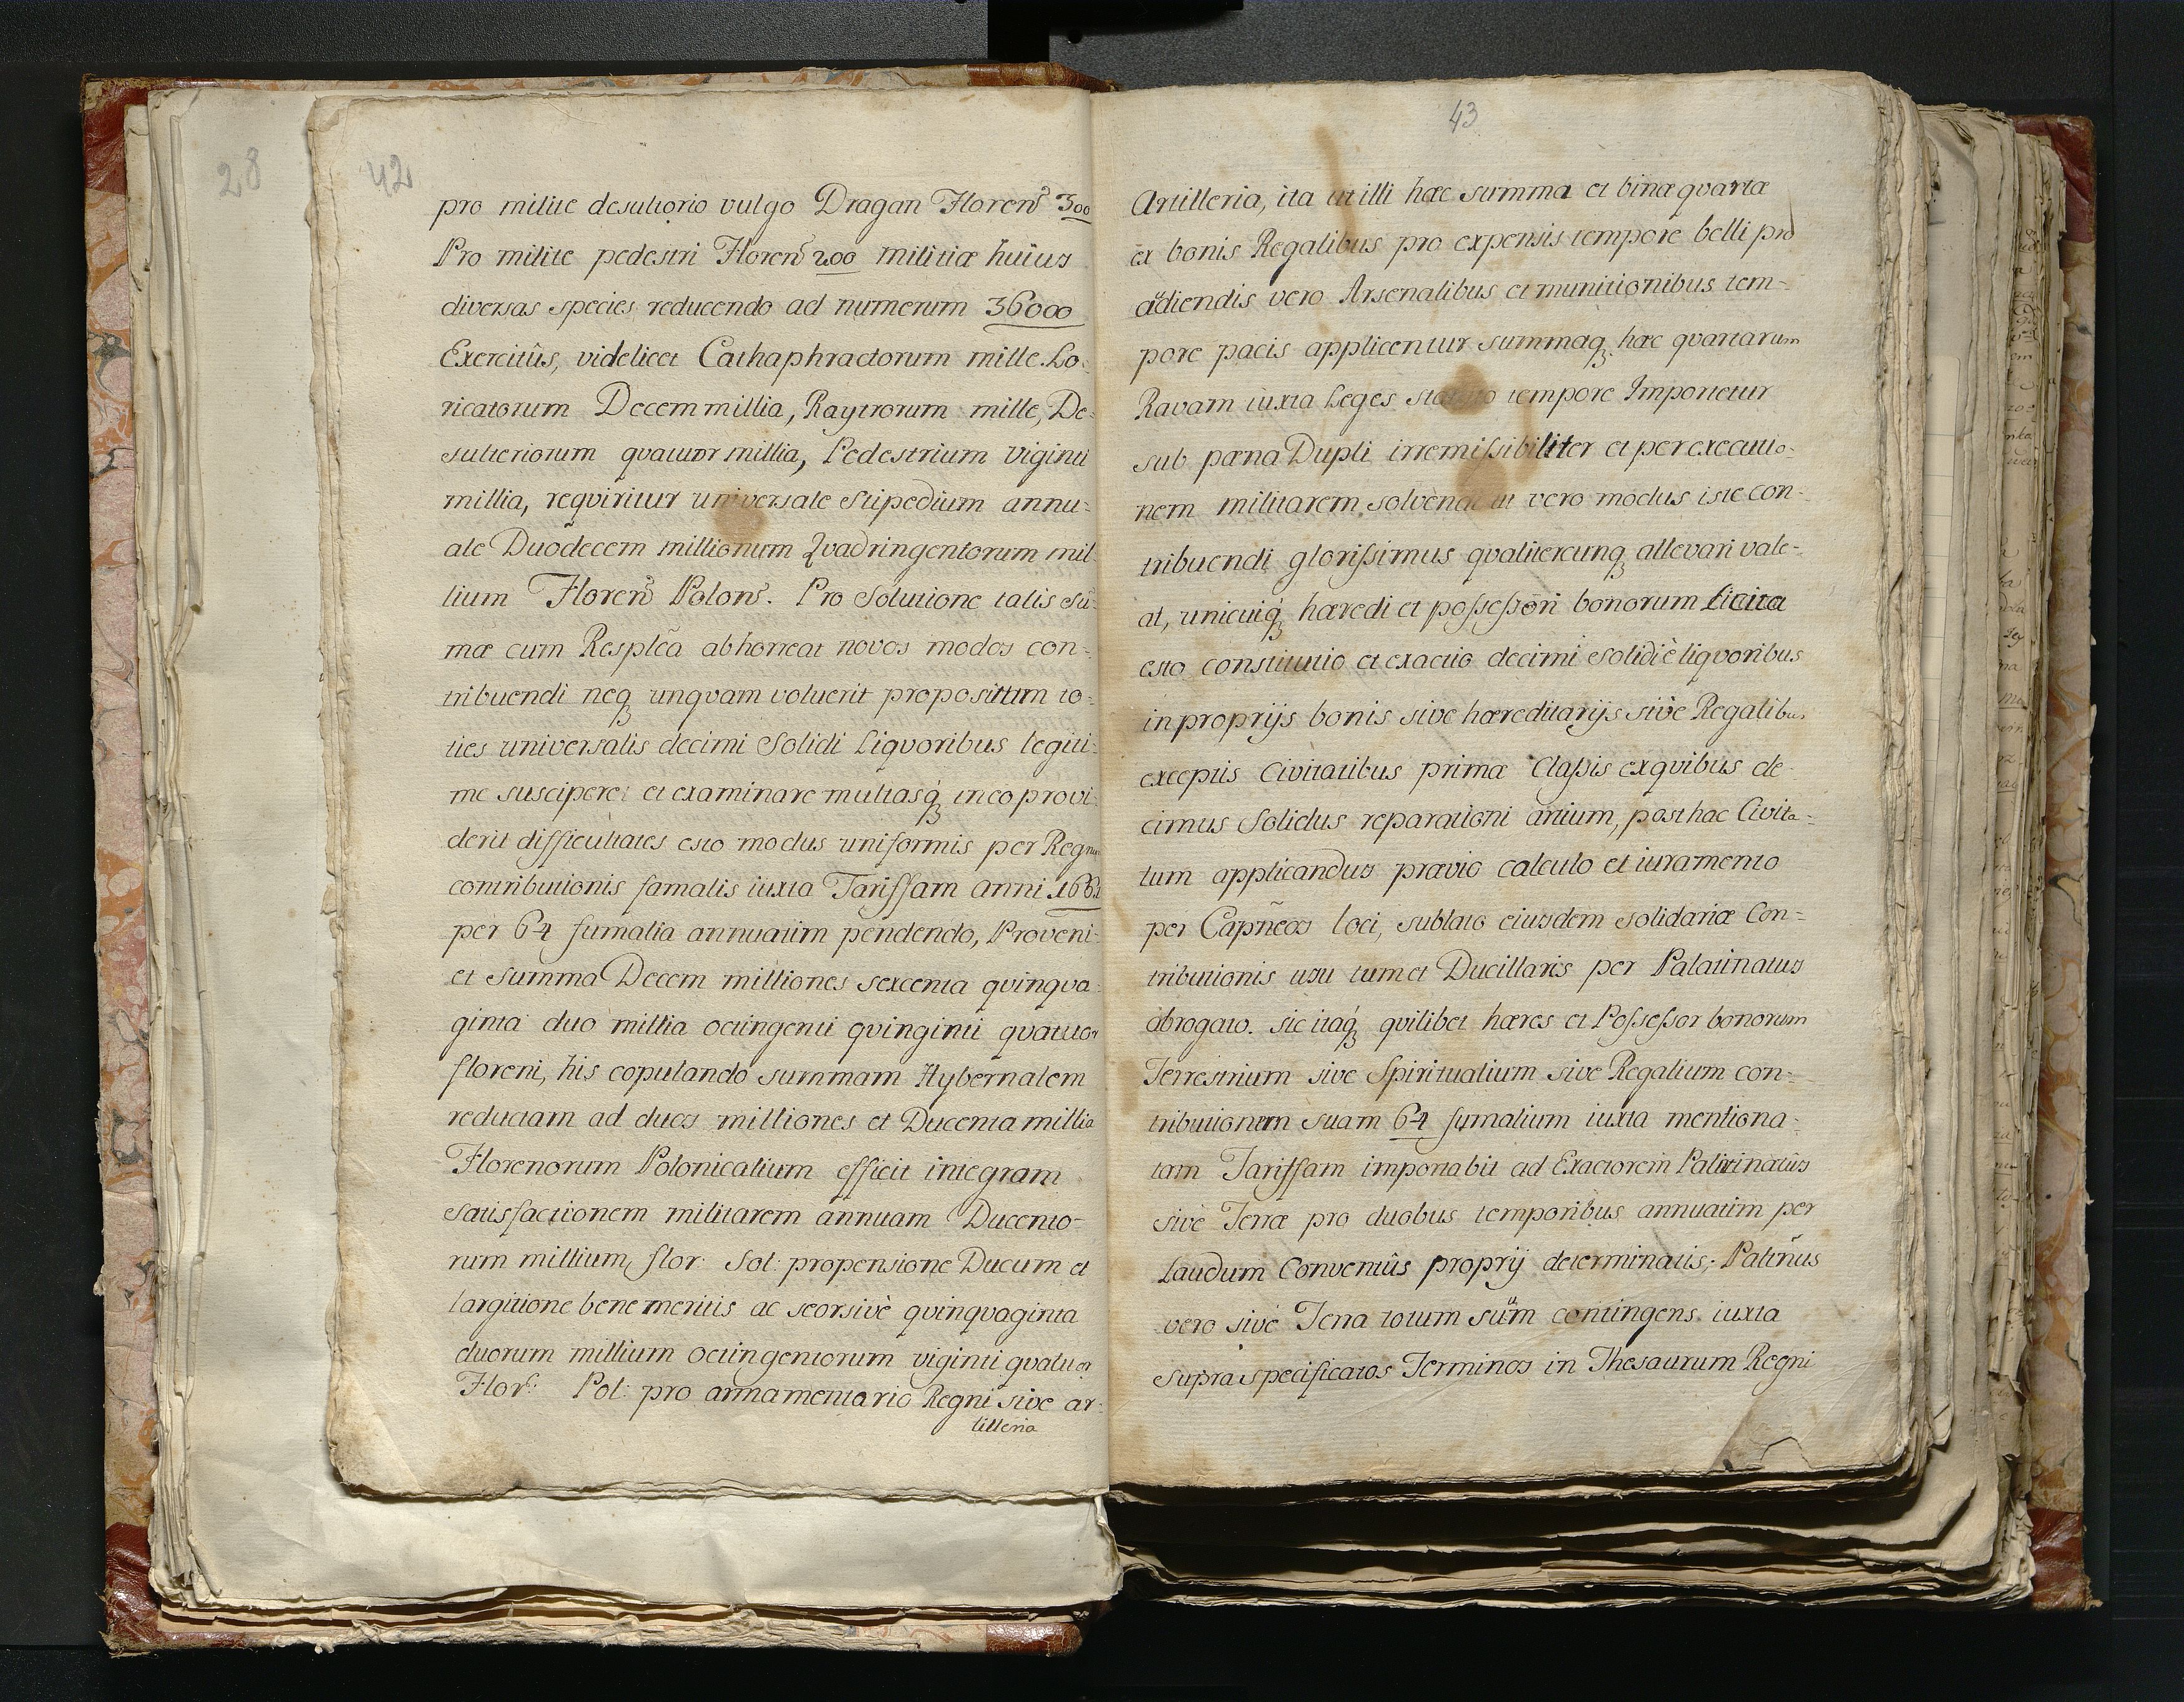 28
42
pro milite desultorio vulgo Dragan Floren̄ 300
Pro milite pedestri Floren̄ 200 militiæ huius
diversas species reducendo ad numerum 36000
Exercitûs, videlicet Cathaphractorum mille. Lo=
ricatorum Decem millia, Raytrorum mille, De=
sulteriorum quatuor millia, Pedestrium viginti
millia, requiritur universale Stipedium annu=
ale Duodecem millionum Quadringentorum mil=
lium Floren̄ Polon̄. Pro Solutione talis Su=
mæ cum Resplēa abhorreat novos modos con=
tribuendi neq́ unquam voluerit propositum to=
ties universalis decimi Solidi Liquoribus legiti=
me suscipere et examinare multasq́ in eo provi=
derit difficultates esto modus uniformis per Regnu
contributionis famalis iuxta Tariffam anni 1661
per 64 fumalia annuatim pendendo, Proveni=
et Summa Decem milliones sexcenta quinqua=
ginta duo millia octingenti quinginti quatuor
floreni, his copulando summam Hybernalem
reductam ad duos milliones et Ducenta millia
Florenorum Polonicalium efficit integram
satisfactionem militarem annuam Ducento=
rum millium flor: Sol: propensione Ducum et
largitione bene meritis ac seorsivè quinquaginta
duorum millium octingentorum viginti quatuor
Flor: Pol: pro armamentario Regni sive ar=
tilleria
43
Artilleria, ita ut illi hæc summa et binæ quartæ
ex bonis Regalibus pro expensis tempore belli pro
adiendis vero Arsenalibus et munitionibus tem=
pore pacis applicentur summaq́ hæc quartarum
Ravam iuxta Leges statuto tempore Importetur
sub pæna Dupli irremissibiliter et per executio=
nem militarem solvenda ut vero modus iste con=
tribuendi glorissimus qualitercunq́ allevari vale=
at, unicuiq́ hæredi et possessori bonorum licita
esto constitutio et exactio decimi Solidi è liquoribus
in proprijs bonis sive hæreditarijs sivè Regalibus
exceptis Civitatibus primæ Classis ex quibus de=
cimus Solidus reparationi artium, post hac Civita=
tum applicandus prævio calculo et iuramento
per Capn̄eos loci, sublato eiusdem solidariæ Con=
tributionis usu tum et Ducillaris per Palatinatus
abrogato. sic itaq́ quilibet hæres et Possessor bonorum
Terrestrium sive Spiritualium sive Regalium con=
tributionem suam 64 fumalium iuxta mentiona=
tam Tariffam importabit ad Exactorem Palatinatûs
sivè Terræ pro duobus temporibus annuatim per
Laudum Conventûs proprij determinatis; Palt̄nus
vero sivè Terra totum suum contingens iuxta
supra specificatos Terminos in Thesaurum Regni